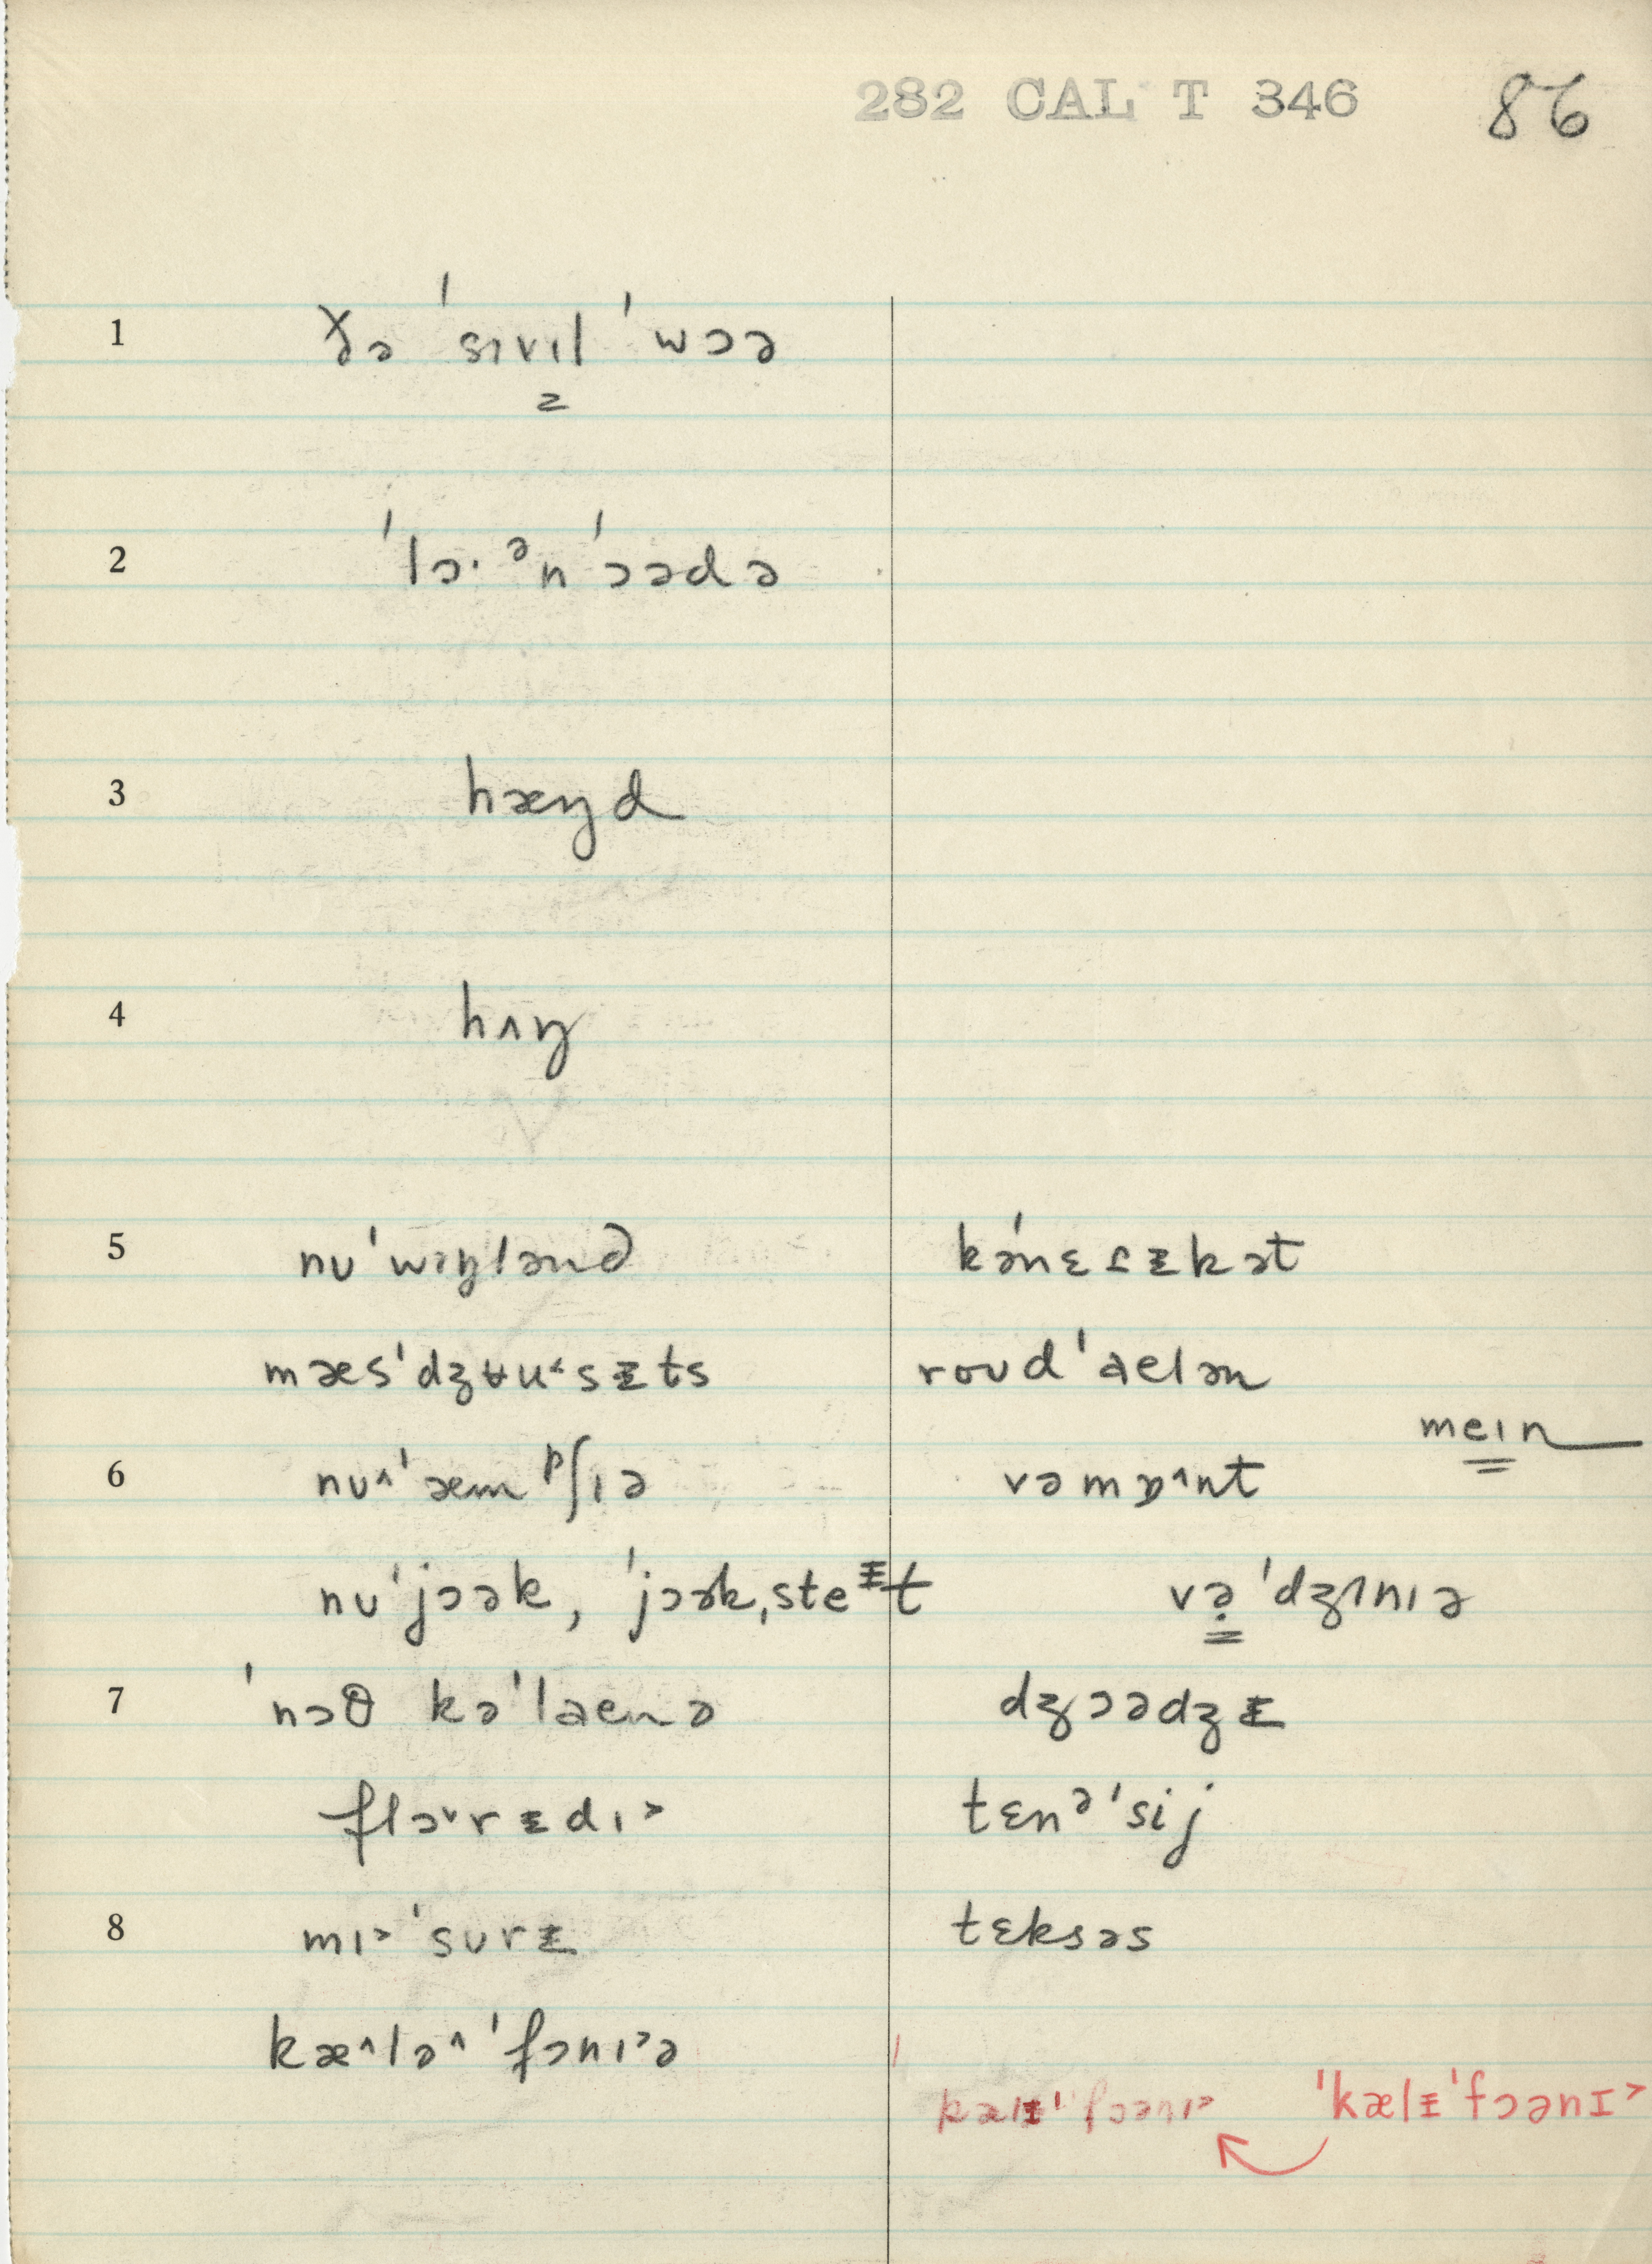 282 CAL T 346 86
1 ðə ˈsɪvɪl ˈwɔə
2 ˈlɔ· ᵊn ˈɔədə
3 hæŋd
4 hʌŋ
5 nʊˈwɪŋlənd kəˈnɛɾᵻkət
mæsˈdʒʉu˂sᵻts roʊdˈaelən
meɪn
6 nʊ^ˈæmᵖʃɪə vəmɒ^nt
nʊˈjɔək, ˈjɔək,steᵻt vəˈdʒɜnɪə
7 ˈnɔθ kəˈlaenə dʒɔədʒᵻ
flɔ˅rᵻdɪ˃ tɛnᵊˈsij
8 mɪ˃ˈsʊrᵻ tɛksəs
kæ^lə^ˈfɔnɪ˃ə
kælᵻˈfɔənɪ˃ ˈkælᵻˈfɔənɪ˃